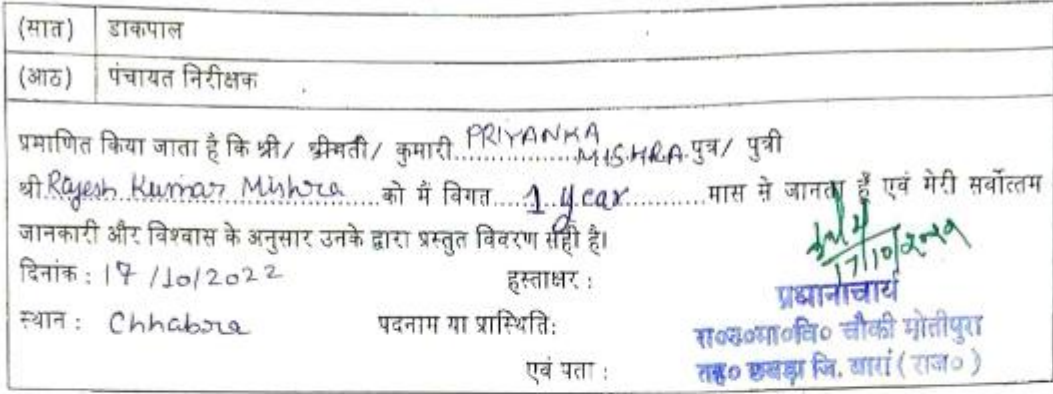 (सात) डाकपाल
(आठ) पंचायत निरीक्षक
प्रमाणित किया जाता है कि श्री/ श्रीमती/ कुमारी PRIYANKA MISHRA पुत्र/ पुत्री
श्री Rajesh Kumar Mishra को मैं विगत 1 year मास से जानता हूँ एवं मेरी सर्वोत्तम
जानकारी और विश्वास के अनुसार उनके द्वारा प्रस्तुत विवरण सही है।
17/10/2022
दिनांक : 17/10/2022 हस्ताक्षर :
प्रधानाचार्य
स्थान : Chhabra पदनाम या प्रास्थिति:
रा०उ०मा०वि० चौकी मोतीपुरा
एवं पता :
तह० छबड़ा जि. बारां ( राज० )